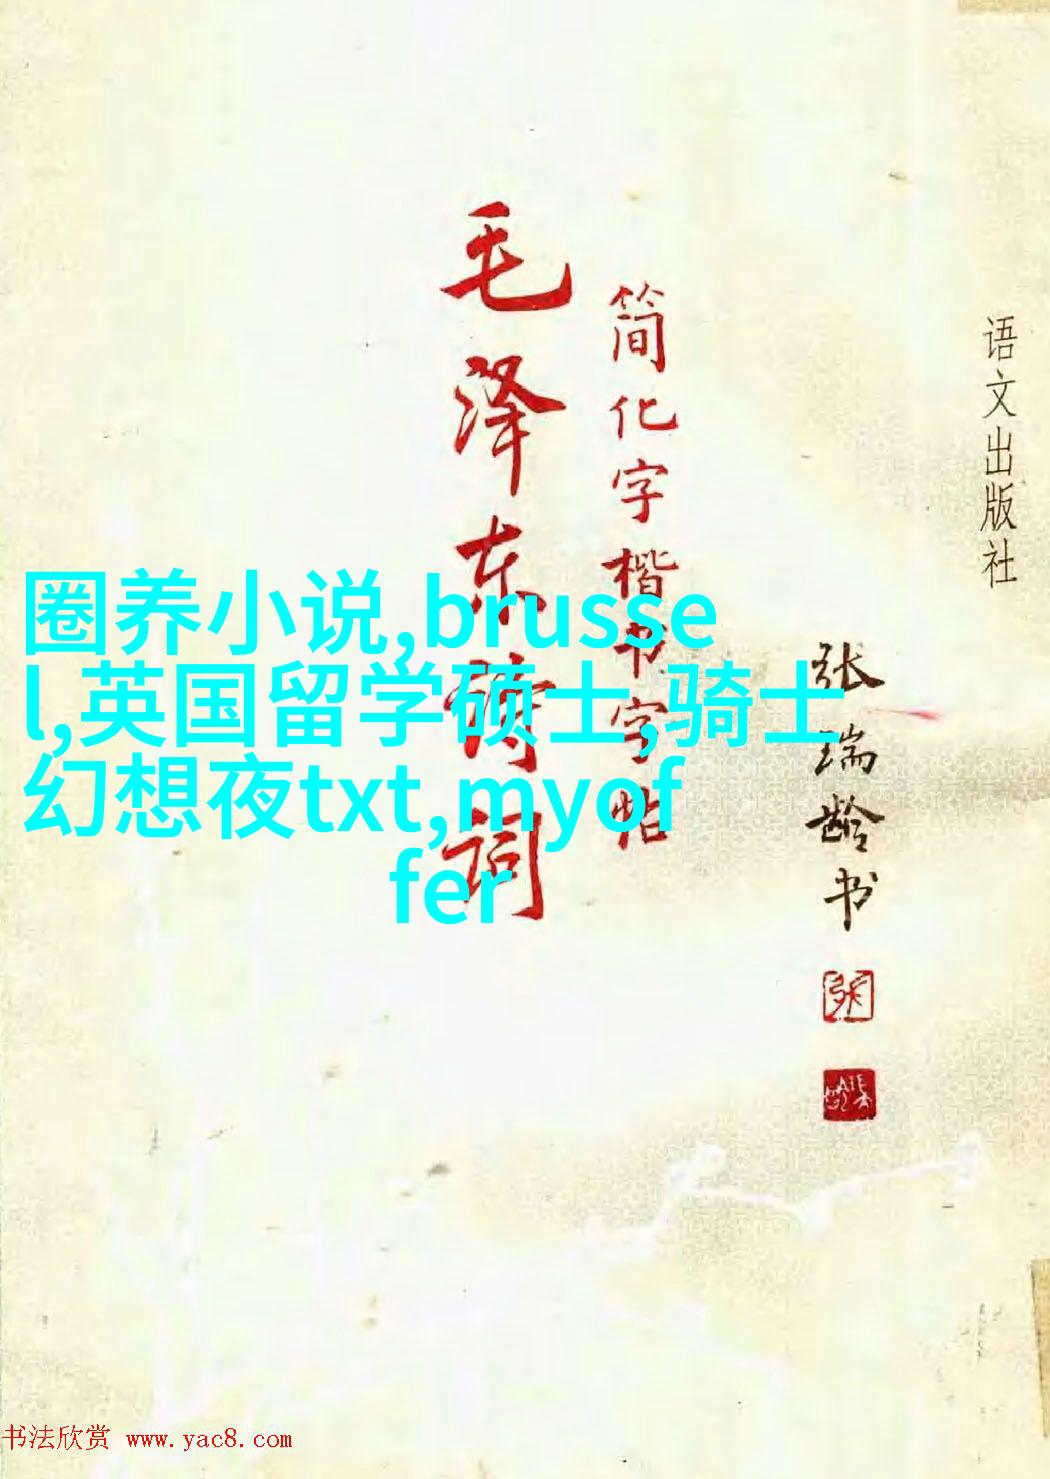 毛泽东诗词
简化字楷书字帖
语文出版社
张瑞龄书
圈养小说,brusse
l,英国留学硕士,骑士
幻想夜txt,myof
fer
书法欣赏 www.yac8.com